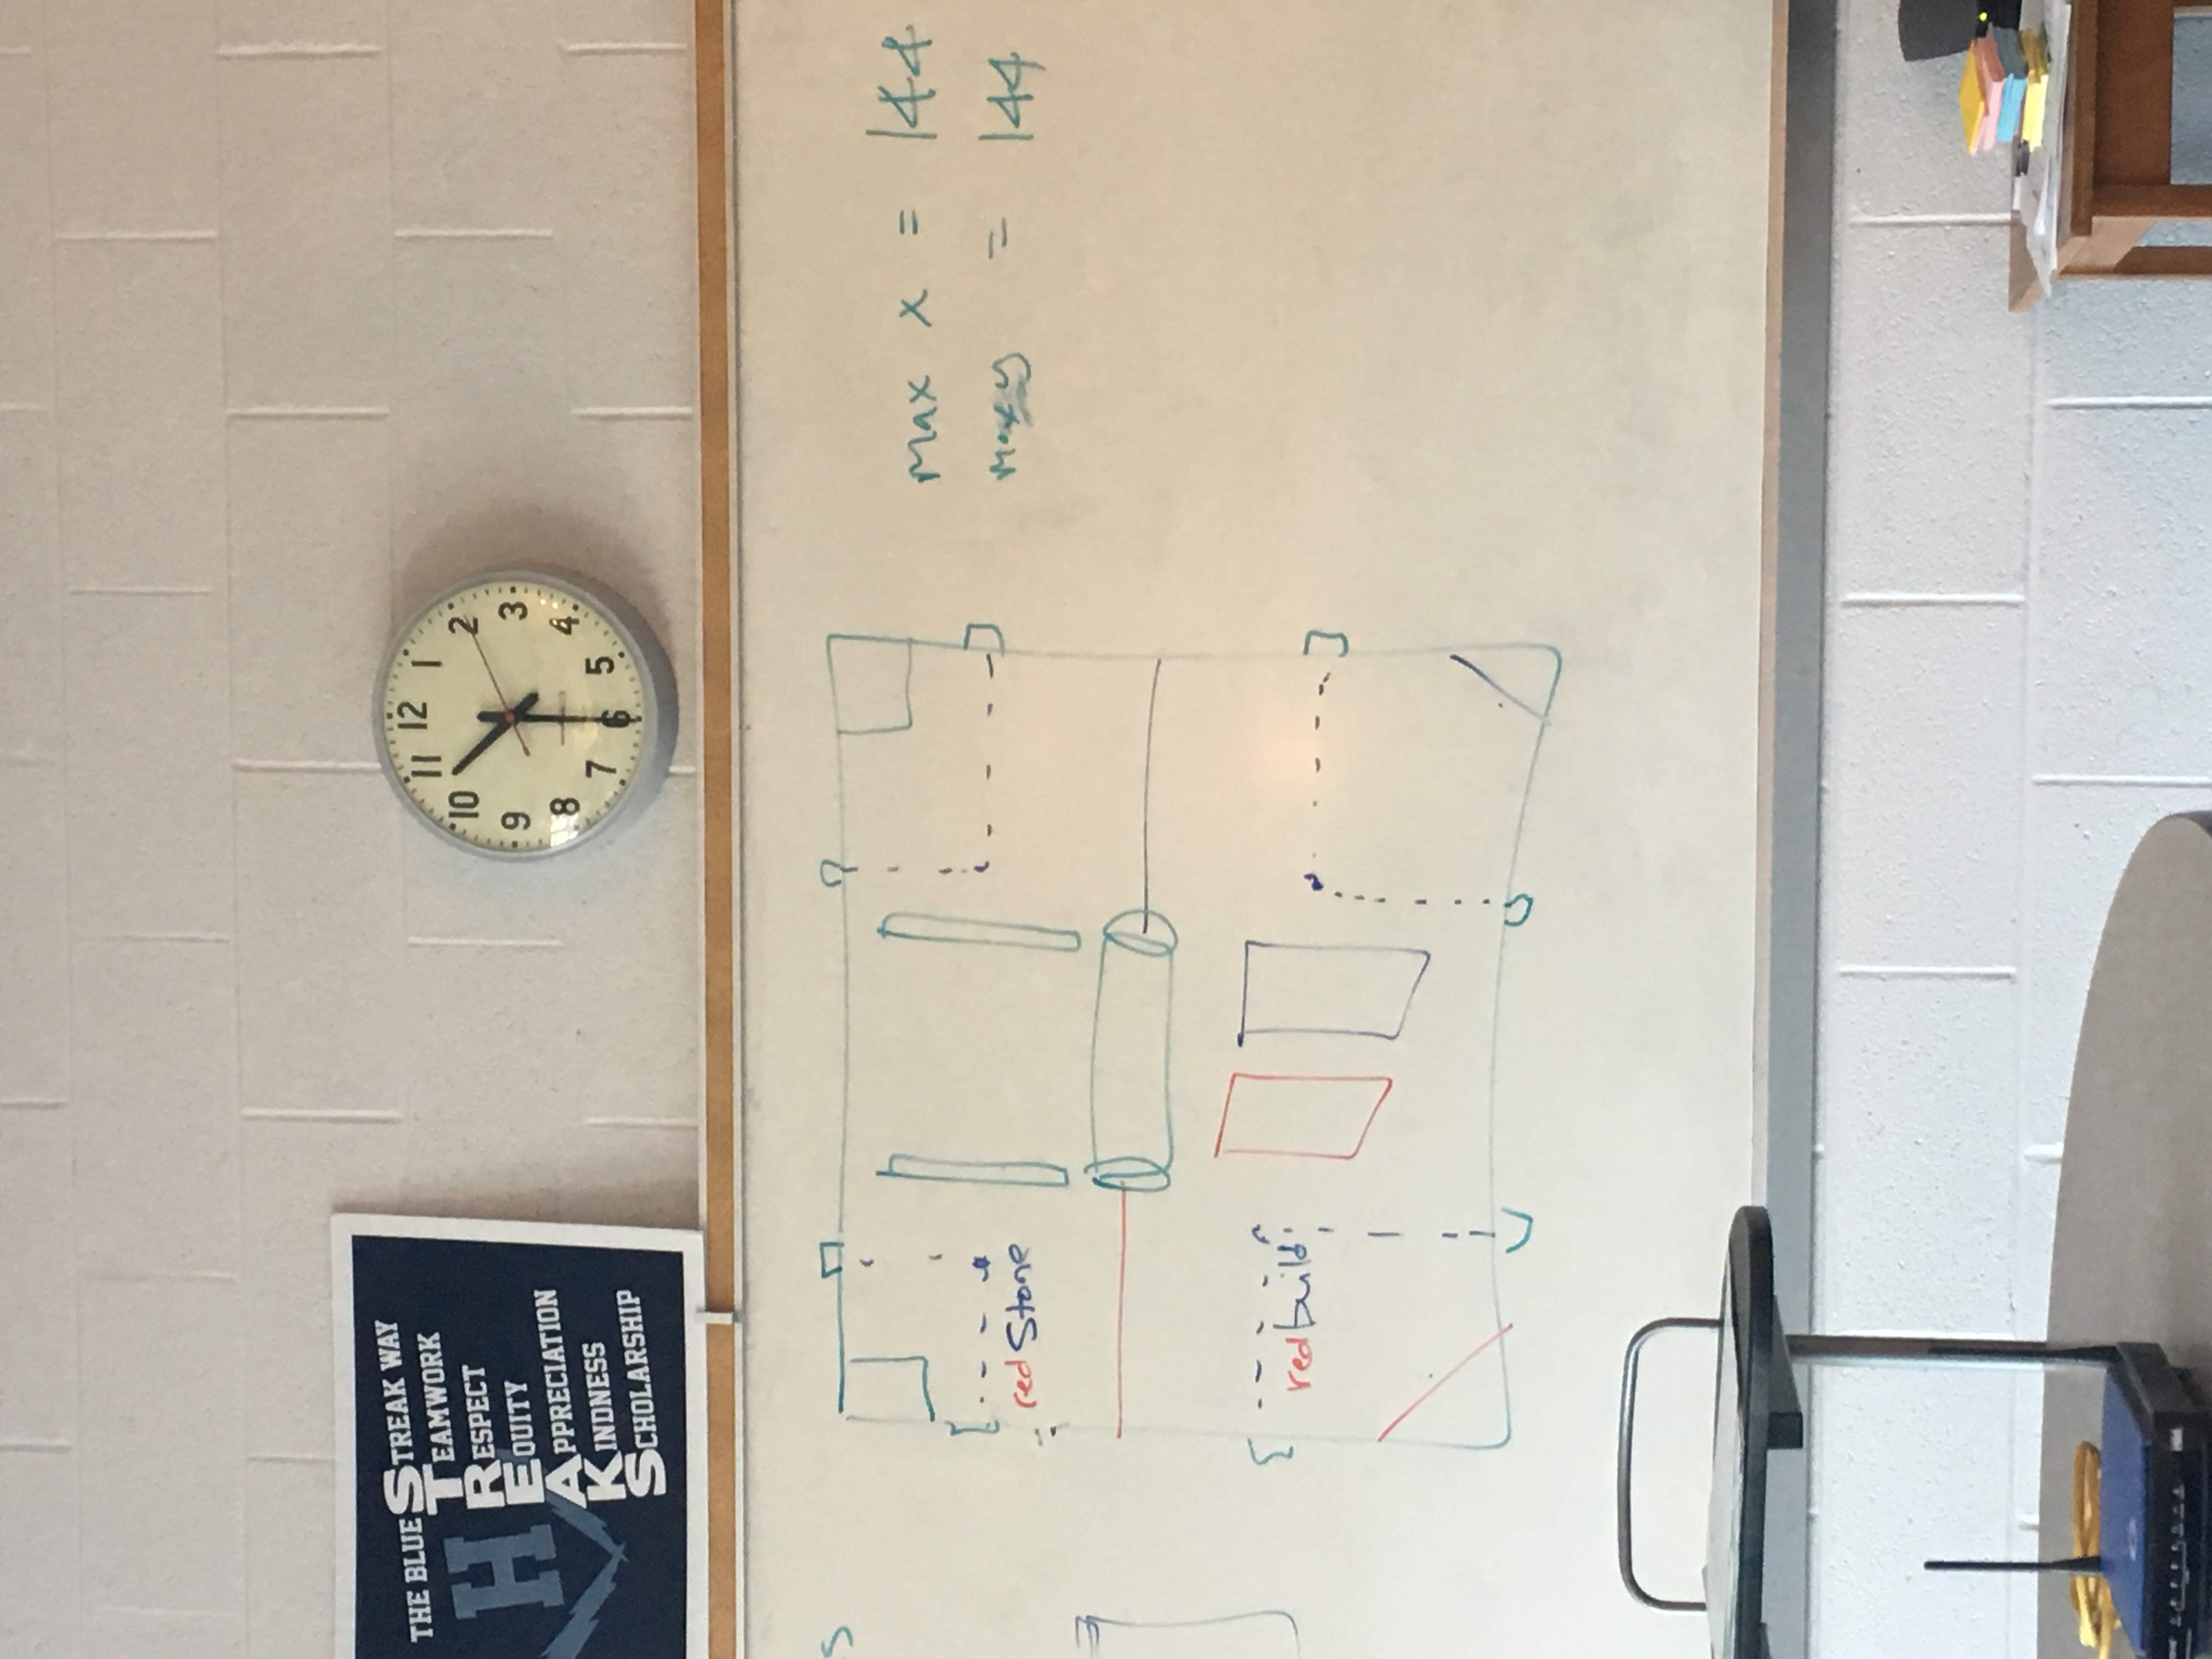 THE BLUE STREAK WAY
TEAMWORK
RESPECT
EQUITY
APPRECIATION
KINDNESS
SCHOLARSHIP
H
12
1
2
3
4
5
6
7
8
9
10
11
s
red Stone
red build
max x = 144
max y = 144